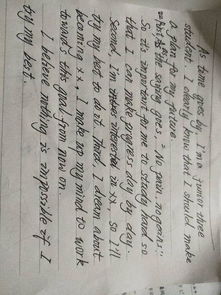 As time goes by, I'm a junior three
student. I clearly know that I should make
a plan to my future.
the saying goes, "No pain, no gain".
So it's important to me to study hard so
that I can make progress day by day.
Second, I'm interested in xx, so I'll
try my best to do it. Third, I dream about
becoming xx, I make up my mind to work
toward this goal from now on
I believe nothing is impossible if I
try my best.